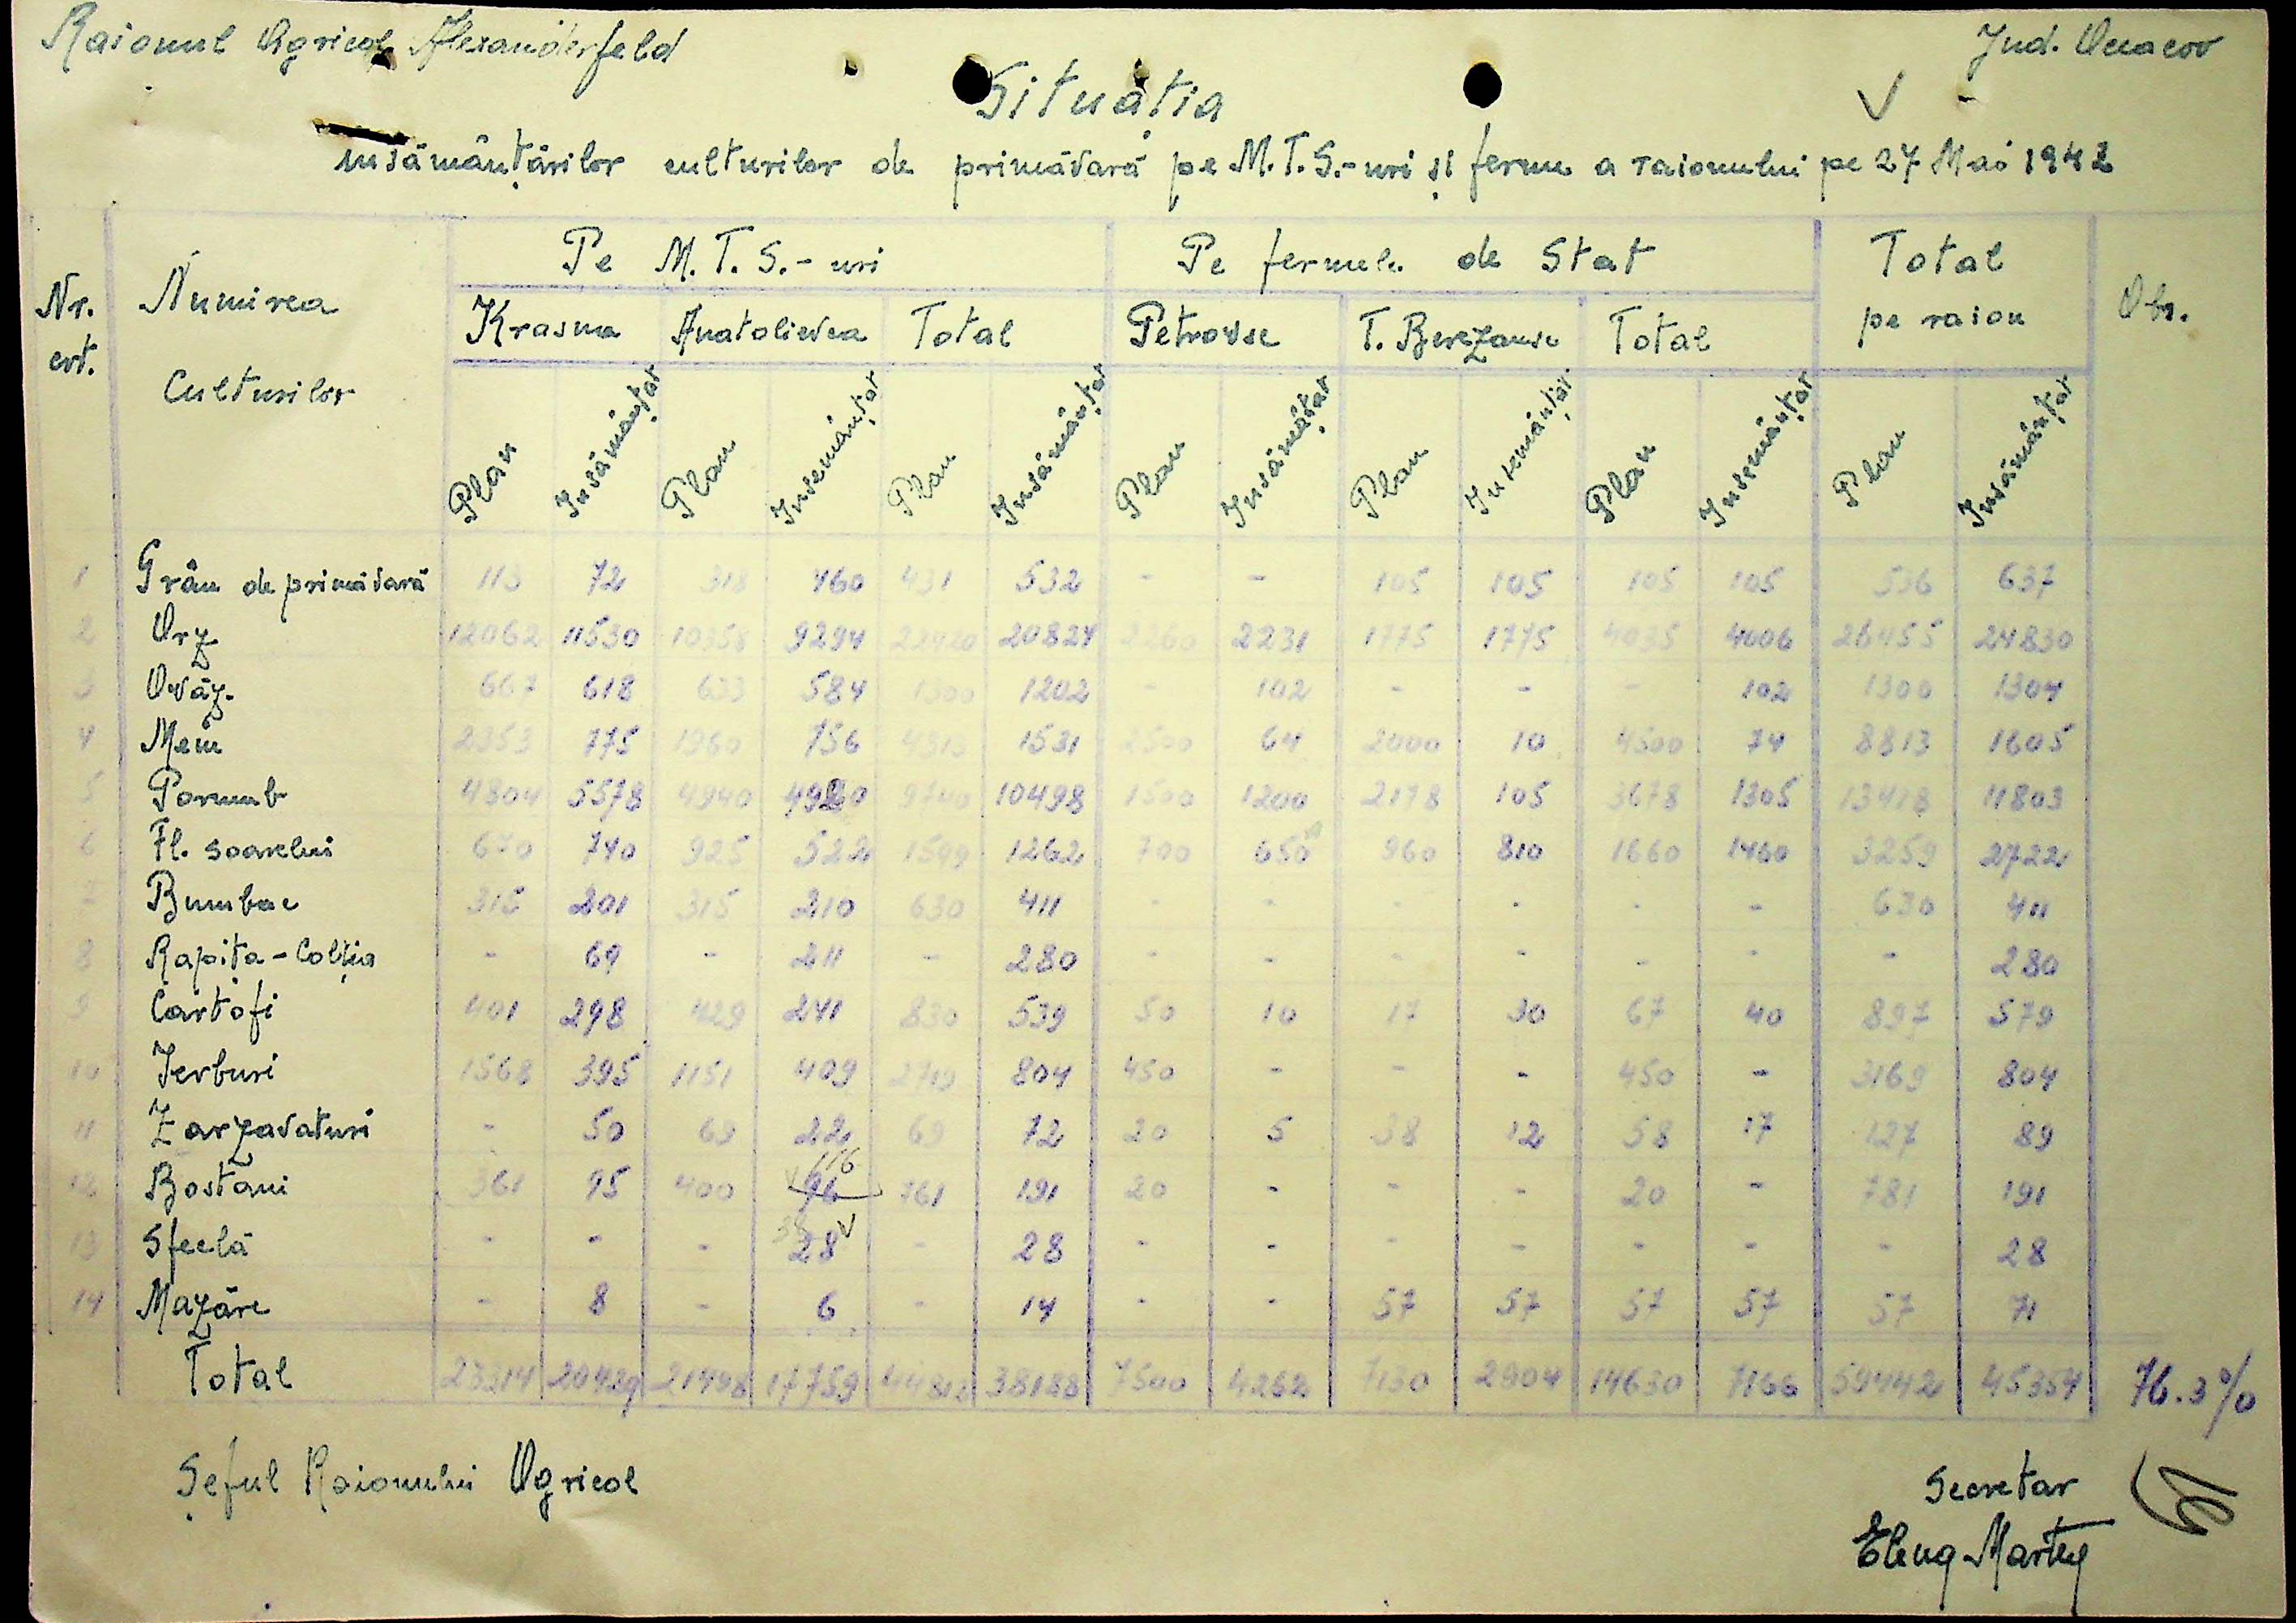 Raionul Agricol Alexanderfeld
Jud. Oceacov
Situația
însămânțărilor culturilor de primăvară pe M.T.S.-uri și ferme a raionului pe 27 Mai 1942
Nr. crt. Numirea Culturilor Pe M.T.S.-uri Pe fermele de Stat Total pe raion Obs.
Krasna Anatolievca Total Petrovsc T. Berezansc Total
Plan Insămânțat Plan Insemânțat Plan Insămânțat Plan Insămâțat Plan Insemânțat Plan Insemânțat Plan Insămânțat
1 Grâu de primăvară 113 72 318 460 431 532 - - 105 105 105 105 536 637
2 Orz 12062 11530 10358 9294 22420 20824 2260 2231 1775 1775 4035 4006 26455 24830
3 Ovăz. 667 618 633 584 1300 1202 - 102 - - - 102 1300 1304
4 Meiu 2353 775 1960 756 4313 1531 2500 64 2000 10 4500 74 8813 1605
5 Porumb 4804 5578 4940 4920 9740 10498 1500 1200 2178 105 3678 1305 13418 11803
6 Fl. soarelui 670 740 925 522 1599 1262 700 650 960 810 1660 1460 3259 2722
7 Bumbac 315 201 315 210 630 411 - - - - - - 630 411
8 Rapița-Colția - 69 - 211 - 280 - - - - - - - 280
9 Cartofi 401 298 429 241 830 539 50 10 17 30 67 40 897 579
10 Ierburi 1568 395 1151 409 2719 804 450 - - - 450 - 3169 804
11 Zarzavaturi - 50 69 22 69 72 20 5 38 12 58 17 127 89
116
12 Bostani 361 95 400 96 761 191 20 - - - 20 - 781 191
13 Sfeclă - - - 28 - 28 - - - - - - - 28
14 Mazăre - 8 - 6 - 14 - - 57 57 57 57 57 71
Total 23314 20429 21498 17759 44812 38188 7500 4262 7130 2904 14630 7166 59442 45354 76.3%
Șeful Raionului Agricol
Secretar